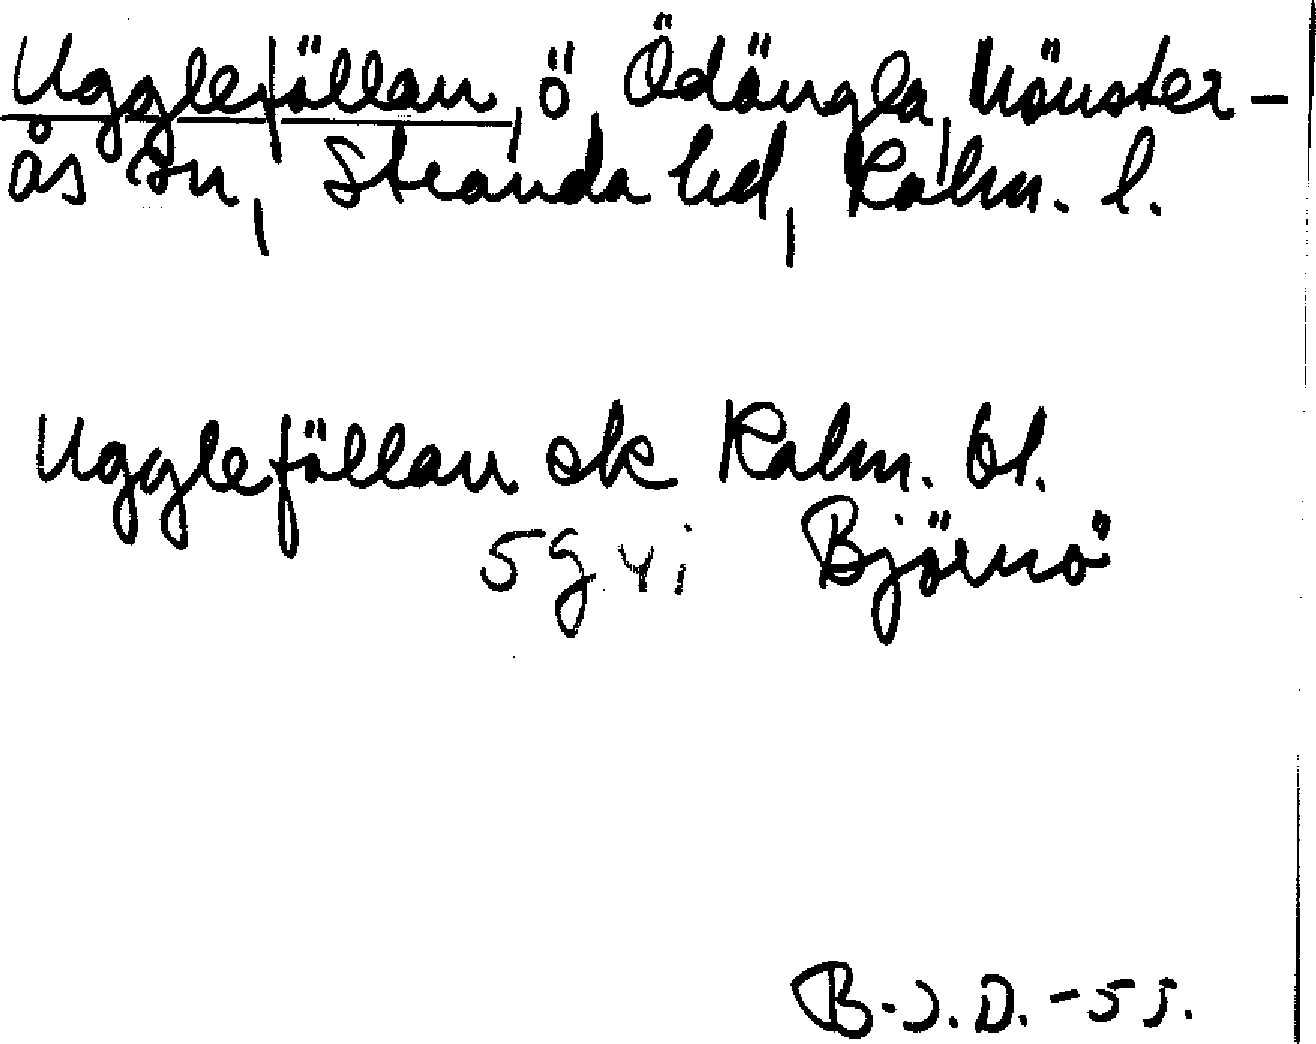 Ugglefällan, ö, Ödängla, Mönster-
ås sn, Stranda hd, Kalm. l.
Ugglefällan ek Kalm. bl.
5g 4i Björnö
B-J.D. -55.